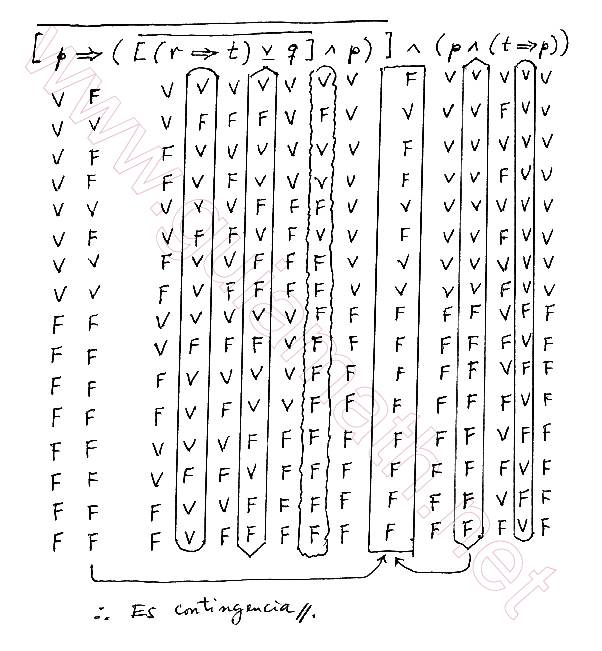 [ p ⇒ ( [ (r ⇒ t) ⊻ q ] ∧ p ) ] ∧ (p ∧ (t ⇒ p))
V F V V V V V V V F V V V V V
V V V F F F V F V V V V F V V
V F F V V V V V V F V V V V V
V F F V F V V V V F V V F V V
V V V V V F F F V V V V V V V
V F V F F V F V V F V V F V V
V V F V V F F F V V V V V V V
V V F V F F F F V V V V F V V
F F V V V V V F F F F F V F F
F F V F F F V F F F F F F V F
F F F V V V V F F F F F V F F
F F F V F V V F F F F F F V F
F F V V V F F F F F F F V F F
F F V F F V F F F F F F F V F
F F F V V F F F F F F F V F F
F F F V F F F F F F F F F V F
∴ Es contingencia //.
www.guiamath.net